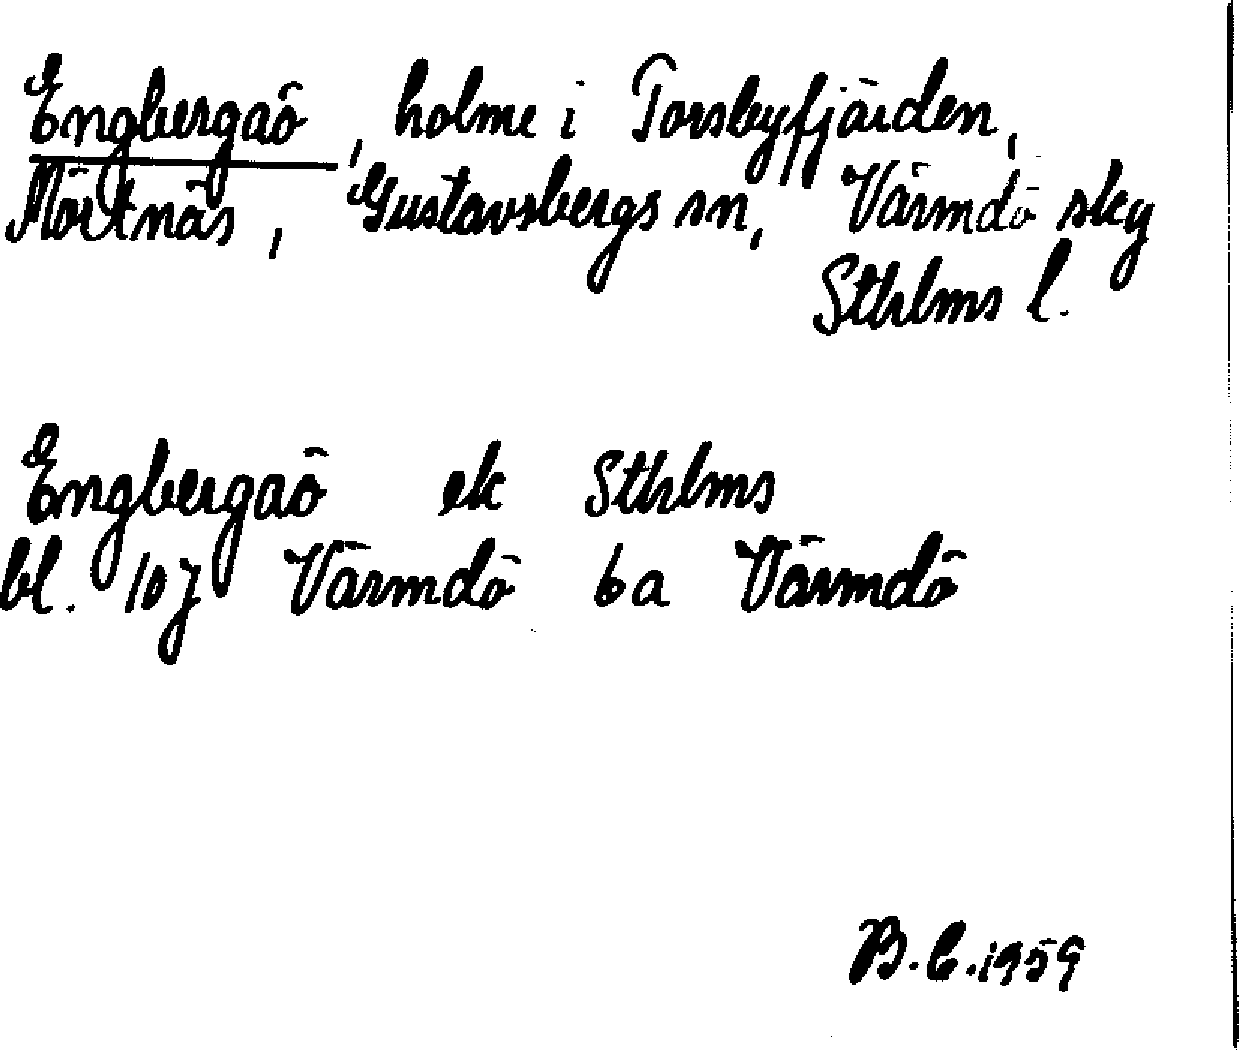 Engbergaö, holme i Torsbyfjärden,
Mörtnäs, Gustavsbergs sn, Värmdö sky
Sthlms l.
Engbergaö ek Sthlms
bl. 10j Värmdö 6a Värmdö
B.C. 1959